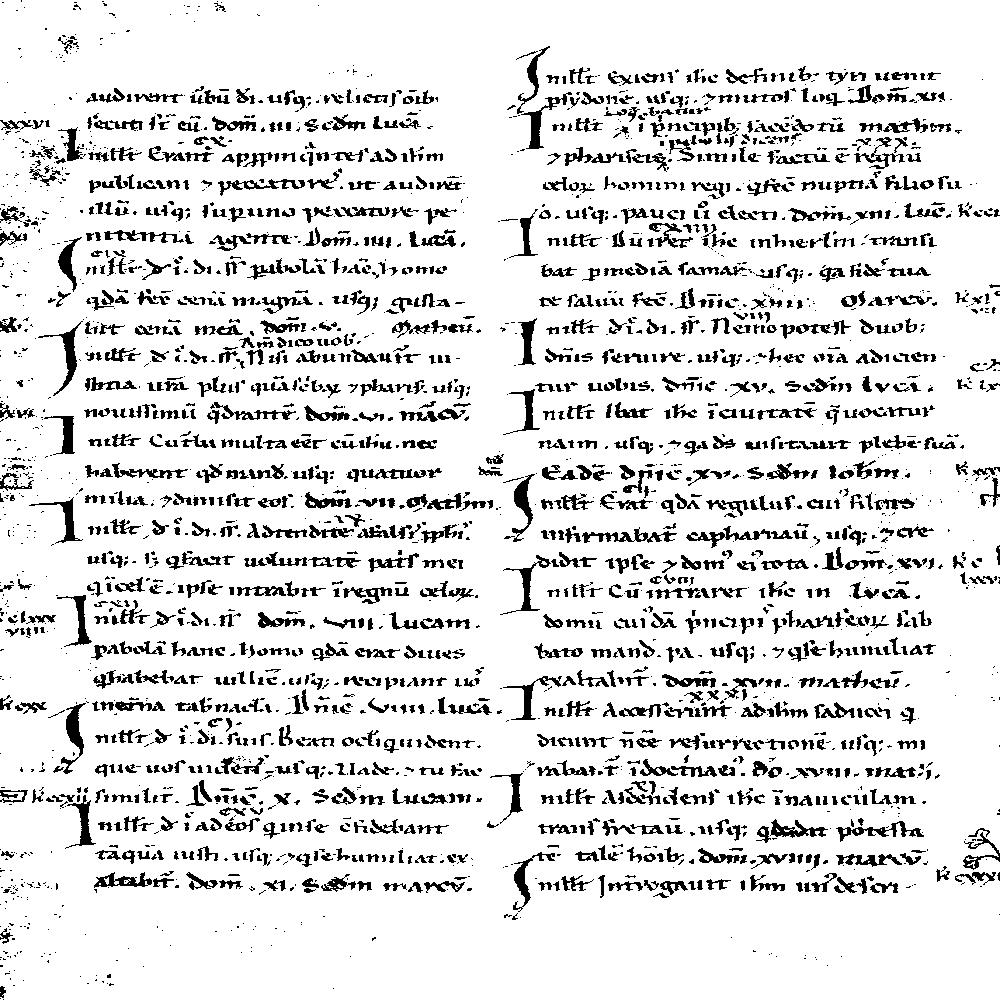 audirent ūbū dī. usq;. relictis oīb;
secuti st̄ eū. dom̄. iii. Sedm̄ Lucā.
In ill̄t Erant appꝓinq̄ntes ad ih̄m
publicani ⁊ peccatores. ut audirēt
illū. usq; sup uno peccatore pe-
nitentiā agente. Dom̄. iiii. Lucā.
In ill̄t d̄ ī. di. sī pabolā hāc, homo
qdā fec̄ cenā magnā. usq; gusta-
bit cenā meā. dom̄. v. Matheū.
Am̄ dico vob.
In ill̄t d̄ ī. di. sī Nisi abundaverit iu-
stitia vr̄a plus quā scribaꝝ ⁊ pharis. usq;
novissimū q̄drantē. dom̄. vi. marcū.
In ill̄t Cū turba multa eēt cū ih̄u. nec
haberent qd mand. usq; quatuor
milia. ⁊ dimisit eos. dom̄. vii. Mathm̄.
In ill̄t d̄ ī. di. sī. Adtendite a falsis ꝓphī.
usq;. s; q facit voluntatē pat̄s mei
q ī cel ē. ipse intrabit ī regnū celoꝝ.
In ill̄t d̄ ī. di. sī dom̄. viii. Lucam.
pabolā hanc. homo qdā erat dives
q habebat villicū. usq;. recipiant vos
in et̄na tab̄nacla. Dn̄ic. viiii. Lucā.
In ill̄t d̄ ī. di. suis. Beati oculi qui vident.
que vos videtis. usq;. Vade. ⁊ tu fac
similit̄. Dn̄ic. x. Sedm̄ Lucam.
In ill̄t d̄ ī ad eos qui in se cōfidebant
tāquā iusti. usq; ⁊ q se humiliat. ex
altabit̄. dom̄. xi. Sedm̄ marcū.
In ill̄t Exiens ih̄c de finib; tyri venit
p sydonē. usq;. ⁊ mutos loq Dom̄. xii.
Loq̄batur
In ill̄t ih̄c p̄ncipib; sacedotū mathm̄.
ī pabolis dicens
⁊ phariseis. Simile factū ē regnū
celoꝝ homini regi. q fec̄ nuptias filio su
o. usq;. pauci v̄o electi. dom̄. xiii. Luc̄.
In ill̄t Dū iret ih̄c in hierlm̄. transi
bat p mediā samar̄. usq;. qa fides tua
te salvū fec̄. Dn̄ic. xiiii. Marcū.
In ill̄t d̄ ī. di. sī. Nemo potest duob;
dn̄is servire. usq;. ⁊ hec om̄a adicien
tur vobis. dn̄ic. xv. Sedm̄ Lucā.
In ill̄t Ibat ih̄c ī civitatē q̄ vocatur
naim. usq;. ⁊ qa ds̄ visitavit plebē suā.
Eadē dn̄ic. xv. Sedm̄ Ioh̄m.
In ill̄t Erat qdā regulus. cui' filius
infirmabat̄ capharnaū, usq;. ⁊ cre
didit ipse ⁊ dom' ei' tota. Dom̄. xvi.
In ill̄t Cū intraret ih̄c in Lucā.
domū cui'dā p̄ncipi' phariseoꝝ sab
bato mand. pa. usq;. ⁊ q se humiliat
exaltabit̄. dom̄. xvii. matheū.
In ill̄t Accesserunt ad ih̄m saducei q
dicunt n̄ ēē resurrectionē. usq;. mi
rabant̄ ī doct̄na ei'. do. xviii. math.
In ill̄t Ascendens ih̄c ī naviculam.
transfretavit. usq; q dedit potesta
tē talē hoīb;. dom̄. xviiii. marcū.
In ill̄t Int̄rogavit ih̄m un' de scri-